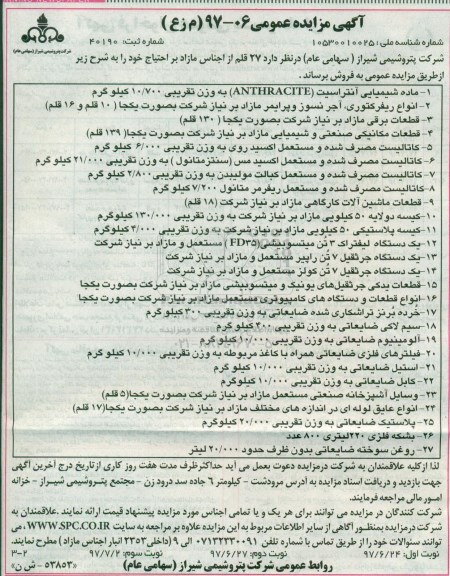 آگهی مزایده عمومی ۰۶-۹۷ (م زع)
شرکت پتروشیمی شیراز (سهامی عام)
شماره شناسه ملی: ۱۰۵۳۰۰۱۰۰۲۵
شماره ثبت: ۴۰۱۹۰
شرکت پتروشیمی شیراز ( سهامی عام) درنظر دارد ۲۷ قلم از اجناس مازاد بر احتیاج خود را به شرح زیر
ازطریق مزایده عمومی به فروش برساند.
۱- ماده شیمیایی آنتراسیت (ANTHRACITE) به وزن تقریبی ۱۰/۷۰۰ کیلو گرم
۲- انواع ریفرکتوری، آجر نسوز وپرایمر مازاد بر نیاز شرکت بصورت یکجا (۱۰ قلم و ۱۶ قلم)
۳- قطعات برقی مازاد بر نیاز شرکت بصورت یکجا ( ۱۳۰ قلم)
۴- قطعات مکانیکی صنعتی و شیمیایی مازاد بر نیاز شرکت بصورت یکجا( ۱۳۹ قلم)
۵- کاتالیست مصرف شده و مستعمل اکسید روی به وزن تقریبی ۶/۰۰۰ کیلو گرم
۶- کاتالیست مصرف شده و مستعمل اکسید مس (سنتزمتانول ) به وزن تقریبی ۲۱/۰۰۰ کیلو گرم
۷- کاتالیست مصرف شده و مستعمل کبالت مولیبدن به وزن تقریبی ۲/۸۰۰ کیلو گرم
۸- کاتالیست مصرف شده و مستعمل ریفرمر متانول ۷/۲۰۰ کیلو گرم
۹- قطعات ماشین آلات کارگاهی مازاد بر نیاز شرکت (۱۸ قلم)
۱۰- کیسه دولایه ۵۰ کیلویی مازاد بر نیاز شرکت به وزن تقریبی ۱۳۰/۰۰۰ کیلوگرم
۱۱- کیسه پلاستیکی ۵۰ کیلویی مازاد بر نیاز شرکت به وزن تقریبی ۲/۰۰۰ کیلوگرم
۱۲- یک دستگاه لیفتراک ۳ تُن میتسوبیشی(FD۳۵ ) مستعمل و مازاد بر نیاز شرکت
۱۳- یک دستگاه جرثقیل ۷ تُن راپیر مستعمل و مازاد بر نیاز شرکت
۱۴- یک دستگاه جرثقیل ۷ تُن کولز مستعمل و مازاد بر نیاز شرکت
۱۵- قطعات یدکی جرثقیل‌های یونیک و میتسوبیشی مازاد بر نیاز شرکت بصورت یکجا
۱۶- انواع قطعات و دستگاه های کامپیوتری مستعمل مازاد بر نیاز شرکت بصورت یکجا
۱۷- خرده بُرنز تراشکاری شده ضایعاتی به وزن تقریبی ۳۰۰ کیلو گرم
۱۸- سیم لاکی ضایعاتی به وزن تقریبی ۳۰۰ کیلو گرم
۱۹- آلومینیوم ضایعاتی به وزن تقریبی ۱۰/۰۰۰ کیلو گرم
۲۰- فیلترهای فلزی ضایعاتی همراه با کاغذ مربوطه به وزن تقریبی ۱۰/۰۰۰ کیلو گرم
۲۱- استیل ضایعاتی به وزن تقریبی ۱۰/۰۰۰ کیلو گرم
۲۲- کابل ضایعاتی به وزن تقریبی ۱۰/۰۰۰ کیلوگرم
۲۳- وسایل آشپزخانه صنعتی مستعمل مازاد بر نیاز شرکت بصورت یکجا(۵ قلم)
۲۴- انواع عایق لوله ای در اندازه های مختلف مازاد بر نیاز شرکت بصورت یکجا(۱۷ قلم)
۲۵- پلاستیک ضایعاتی به وزن تقریبی ۲۰/۰۰۰ کیلوگرم
۲۶- بشکه فلزی ۲۲۰لیتری ۸۰۰ عدد
۲۷- روغن سوخته ضایعاتی بدون ظرف حدود ۲۰/۰۰۰ لیتر
لذا ازکلیه علاقمندان به شرکت درمزایده دعوت بعمل می آید حداکثرظرف مدت هفت روز کاری ازتاریخ درج آخرین آگهی
جهت بازدید و دریافت اسناد مزایده به آدرس مرودشت - کیلومتر ۶ جاده سد درود زن - مجتمع پتروشیمی شیراز - خزانه
امور مالی مراجعه فرمایند.
شرکت کنندگان در مزایده می توانند برای هر یک و یا تمامی اجناس مورد مزایده پیشنهاد قیمت ارائه نمایند .علاقمندان به
شرکت درمزایده بمنظور آگاهی از سایر اطلاعات مربوط به این مزایده علاوه بر مراجعه به سایت WWW.SPC.CO.IR، می
توانند سئوالات خود را از طریق تماس با شماره تلفن ۰۷۱۳۲۳۳۰۰۹۱ الی ۹ (داخلی ۲۳۵۲ انبار اجناس مازاد) مطرح نمایند.
نوبت اول: ۹۷/۶/۲۴ نوبت دوم: ۹۷/۶/۲۷ نوبت سوم: ۹۷/۷/۲ ۳-۲
روابط عمومی شرکت پتروشیمی شیراز (سهامی عام) «۵۳۸۵۳ - ش ن»